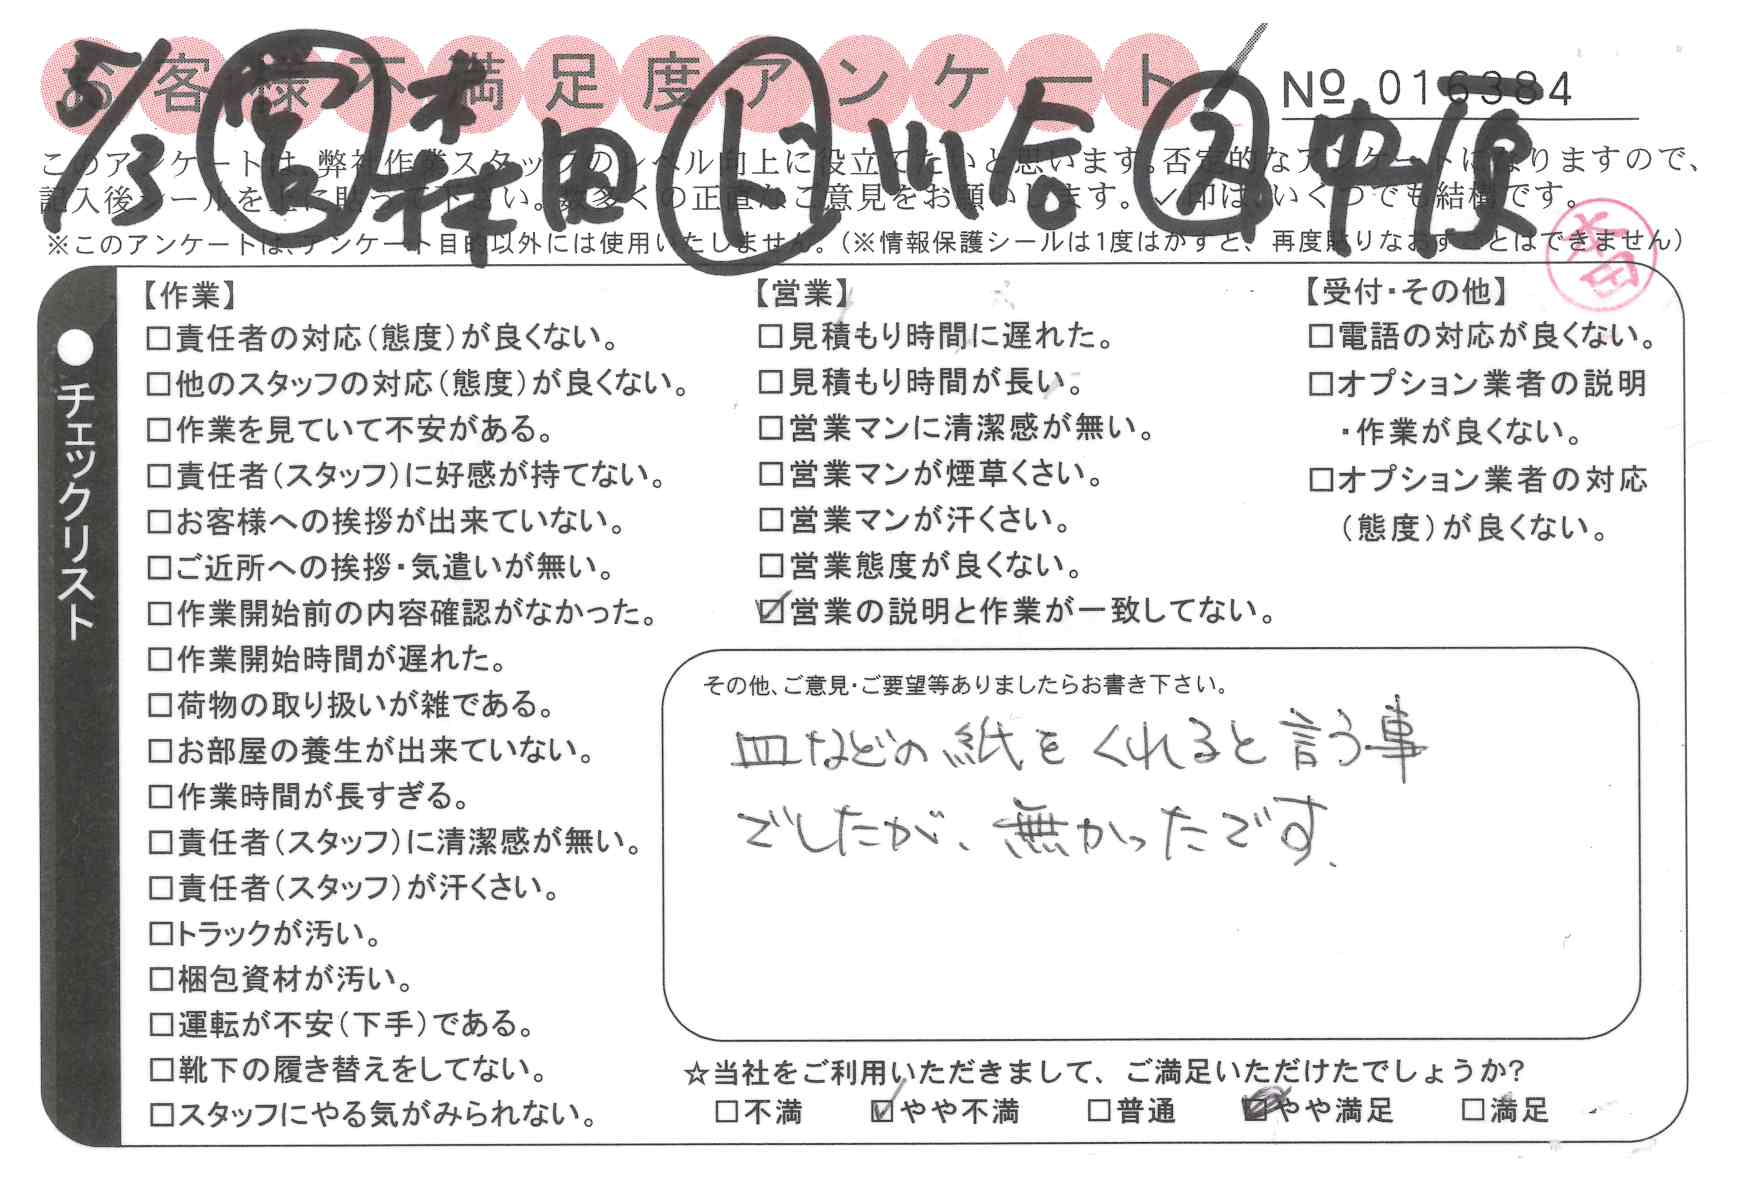 お客様不満足度アンケート
№ 016384
5/3 営 森田 川合 中 便
このアンケートは、弊社作業スタッフのレベル向上に役立てたいと思います。否定的なアンケートになりますので、
記入後シールを上に貼って下さい。数多くの正直なご意見をお願いします。✓印は、いくつでも結構です。
※このアンケートは、アンケート目的以外には使用いたしません。(※情報保護シールは1度はがすと、再度貼りなおすことはできません)
チェックリスト
【作業】
□責任者の対応(態度)が良くない。
□他のスタッフの対応(態度)が良くない。
□作業を見ていて不安がある。
□責任者(スタッフ)に好感が持てない。
□お客様への挨拶が出来ていない。
□ご近所への挨拶・気遣いが無い。
□作業開始前の内容確認がなかった。
□作業開始時間が遅れた。
□荷物の取り扱いが雑である。
□お部屋の養生が出来ていない。
□作業時間が長すぎる。
□責任者(スタッフ)に清潔感が無い。
□責任者(スタッフ)が汗くさい。
□トラックが汚い。
□梱包資材が汚い。
□運転が不安(下手)である。
□靴下の履き替えをしてない。
□スタッフにやる気がみられない。
【営業】
□見積もり時間に遅れた。
□見積もり時間が長い。
□営業マンに清潔感が無い。
□営業マンが煙草くさい。
□営業マンが汗くさい。
□営業態度が良くない。
☑営業の説明と作業が一致してない。
【受付・その他】
□電語の対応が良くない。
□オプション業者の説明
・作業が良くない。
□オプション業者の対応
(態度)が良くない。
その他、ご意見・ご要望等ありましたらお書き下さい。
皿などの紙をくれると言う事
でしたが、無かったです.
☆当社をご利用いただきまして、ご満足いただけたでしょうか?
□不満 ☑やや不満 □普通 ☑やや満足 □満足